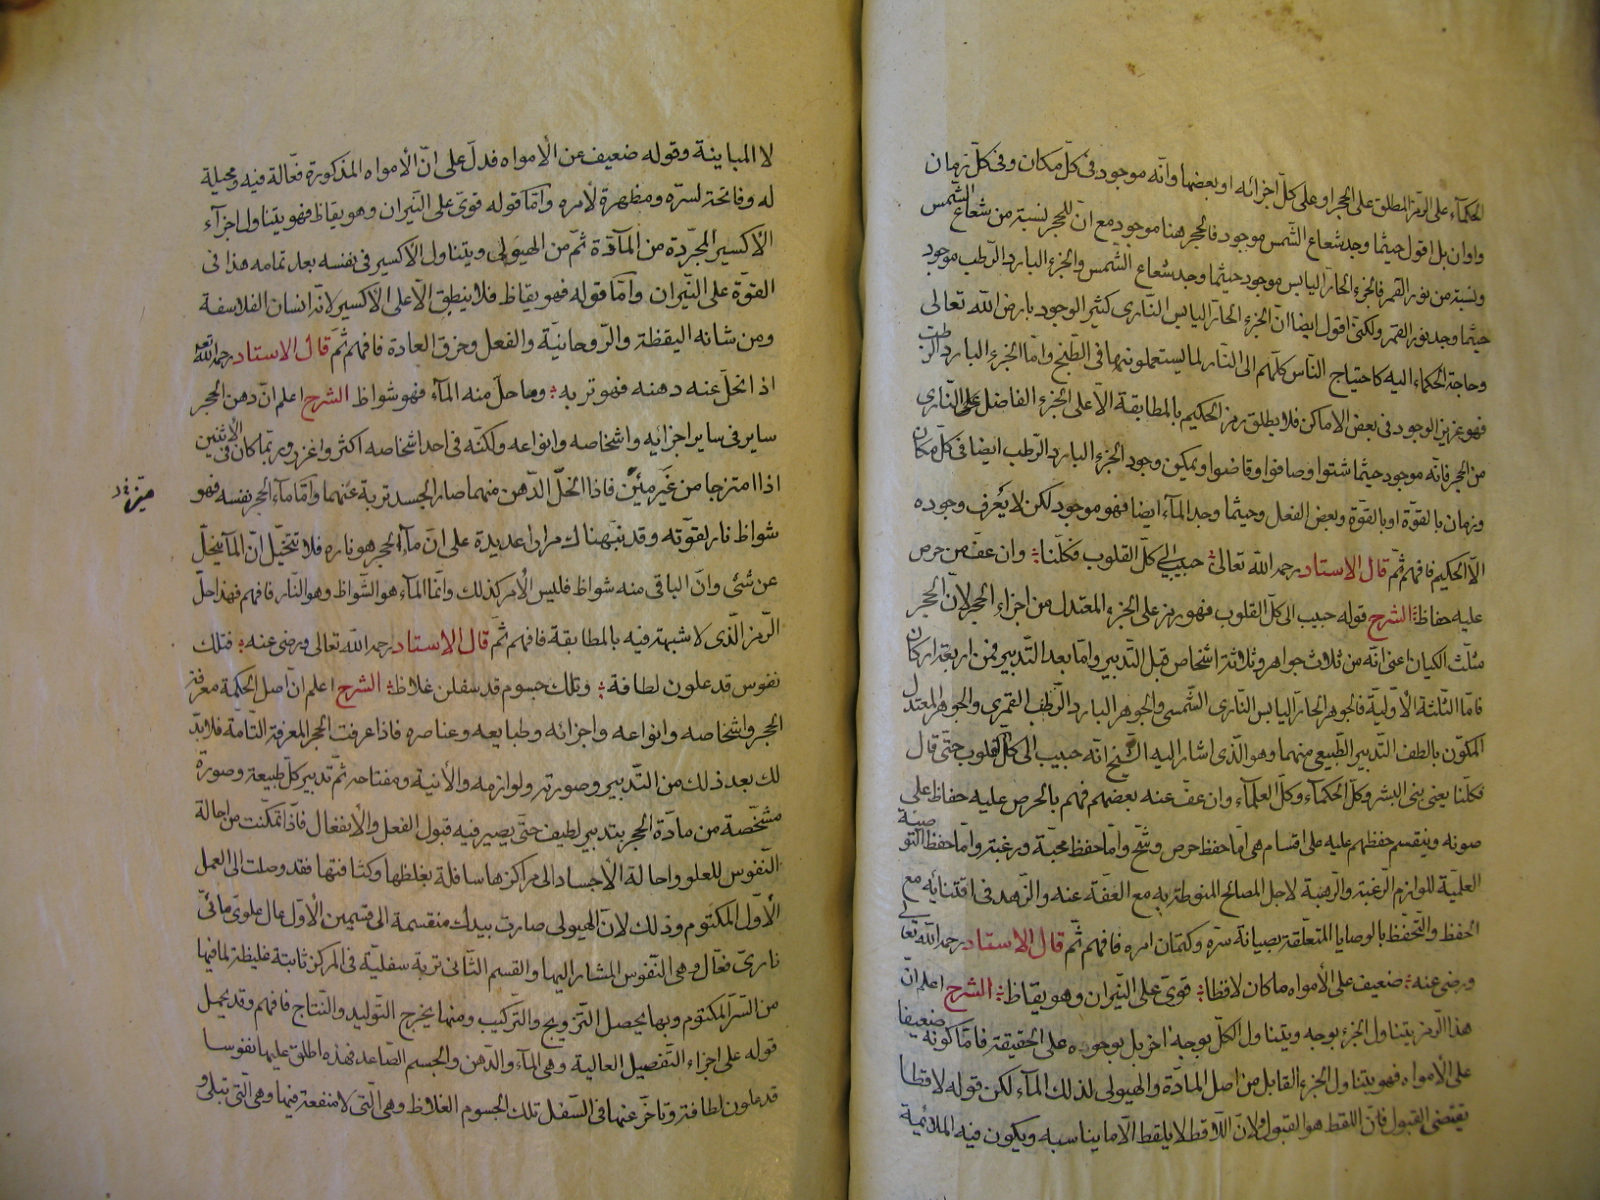 الحكمآء على الرمز المطلق على الحجر او على كلّ اجزائه او بعضها وانّه موجود فى كلّ مكان وفى كلّ زمان
واوان بل اقول حيثما وجد شعاع الشمس موجود فالحجر هنا موجود مع انّ للحجر نسبة من شعاع الشمس
ونسبة من نور القمر فالجزء الحارّ اليابس موجود حيثما وجد شعاع الشمس والجزء البارد الرّطب موجود
حيثما وجد نور القمر ولكنّى اقول ايضا انّ الجزء الحارّ اليابس النّارى كثير الوجود بارض اللّه تعالى
وحاجة الحكماء اليه كاحتياج النّاس كلّهم الى النّار لما يستعملونها فى الطّبخ وامّا الجزء البارد الرّطب
فهو عزيز الوجود فى بعض الاماكن فلا يطلق رمز الحكيم بالمطابقة الّا على الجزء الفاضل النّارى
من الحجر فانّه موجود حيثما شتوا وصافوا وقاضوا ويمكن وجود الجزء البارد الرّطب ايضا فى كلّ مكان
وزمان بالقوّة او بالقوّة وبعض الفعل وحيثما وجد المآء ايضا فهو موجود لكن لا يعرف وجوده
الّا الحكيم فافهم ثمّ قال الاستاد رحمه اللّه تعالى حبيب الى كلّ القلوب فكلّنا وان عفّ من حرص
عليه حفاظ الشرح قوله حبيب الى كلّ القلوب فهو رمز على الجزء المعتدل من اجزاء الحجر لانّ الحجر
مثلّث الكيان اعنى انّه من ثلاث جواهر وثلاثة اشخاص قبل التّدبير وامّا بعد التّدبير فمن اربعة اركان
فامّا الثّلثة الاوليّة فالجوهر الحارّ اليابس النّارى الشّمسى والجوهر البارد الرّطب القمرى والجوهر المعتدل
المكوّن بالطف التّدبير الطّبيعى منهما وهو الّذى اشار اليه الشّيخ انّه حبيب الى كلّ القلوب حتّى قال
فكلّنا يعنى بنى البشر وكلّ الحكمآء وكلّ العلمآء وان عفّ عنه بعضهم فهم بالحرص عليه حفاظ على
صونه وينقسم حفظهم عليه على اقسام هى امّا حفظ حرص وشحّ وامّا حفظ محبّة ورغبة وامّا حفظ التّوصية
العلميّة للوازم الرّغبة والرّهبة لاجل المصالح المنوطة به مع العفّة عنه والزّهد فى اقتنايه مع
الحفظ والتّحفّظ بالوصايا المتعلّقة بصيانة سرّه وكتمان امره فافهم ثمّ قال الاستاد رحمه اللّه تعالى
ورضى عنه ضعيف على الأمواه ما كان لاقطا قوىّ على النّيران وهو يقاظ الشرح اعلم انّ
هذا الرّمز يتناول الجزء بوجه ويتناول الكلّ بوجه اخر بل بوجوده على الحقيقة فامّا كونه ضعيفا
على الأمواه فهو يتناول الجزء القابل من اصل المادّة والهيولى لذلك المآء لكن قوله لاقطا
يقتضى القبول فانّ اللقط هو القبول ولانّ اللّاقط لا يلقط الّا ما يناسبه ويكون فيه الملائمة
لا المباينة وقوله ضعيف عن الأمواه فدلّ على انّ الأمواه المذكورة فعّالة فيه ومحيلة
له وفاتحة لسرّه ومظهرة لأمره وامّا قوله قوىّ على النّيران وهو يقاظ فهو يتناول اجزآء
الأكسير المجرّدة من المآدّة ثمّ من الهيولى ويتناول الأكسير فى نفسه بعد تمامه هذا فى
القوّة على النّيران وامّا قوله فهو يقاظ فلا ينطبق الّا على الأكسير لانّه انسان الفلاسفة
ومن شانه اليقظة والرّوحانيّة والفعل وخرق العادة فافهم ثمّ قال الاستاد رحمه اللّه تعالى
اذا انحلّ عنه دهنه فهو تربه وما حلّ منه المآء فهو شواظ الشرح اعلم انّ دهن الحجر
ساير فى ساير اجزايه واشخاصه وانواعه ولكنّه فى احد اشخاصه اكثر واغزر وربّما كان فى الاثنين
اذا امتزجا من غير فاذا انحلّ الدّهن منهما صار الجسد تربة عنهما وامّا مآء الحجر نفسه فهو
شواظ نار لقوّته وقد نبّه هناك مرارا عديدة على انّ مآء الحجر هو ناره فلا تتخيّل انّ المآء ينحلّ
عن شئى وانّ الباقى منه شواظ فليس الأمر كذلك وانّما المآء هو الشّواظ وهو النّار فافهم فهذا حلّ
الرّمز الّذى لا شبهة فيه بالمطابقة فافهم ثمّ قال الاستاد رحمه اللّه تعالى ورضى عنه فتلك
نفوس قد علون لطافة وتلك جسوم قد سفلن غلاظ الشرح اعلم انّ اصل الحكمة معرفة
الحجر واشخاصه وانواعه واجزائه وطبايعه وعناصره فاذا عرفت الحجر المعرفة التّامة فلا بدّ
لك بعد ذلك من التّدبير وصورته ولوازمه والأنية ومفتاحه ثمّ تدبير كلّ طبيعة وصورة
مشخّصة من مادّة الحجر بتدبير لطيف حتّى يصير فيه قبول الفعل والأنفعال فاذا تمكّنت من احالة
النّفوس للعلو واحالة الأجساد الى مراكزها سافلة بغلظها وكثافتها فقد وصلت الى العمل
الأوّل المكتوم وذلك لانّ الهيولى صارت بيدك منقسمة الى قسمين الأوّل عال علوىّ مائىّ
نارىّ فعّال وهى النّفوس المشار اليها والقسم الثّانى تربة سفليّة فى المركز ثابتة غليظة لما فيها
من السّرّ المكتوم وبها يحصل التّزويج والتّركيب ومنها يخرج التّوليد والنّتاج فافهم وقد يحمل
قوله على اجزاء التّفصيل العالية وهى المآء والدّهن والجسم الصّاعد فهذه اطلق عليها نفوسا
قد علون لطافة وتاخّر عنها فى السّفل تلك الجسوم الغلاظ وهى الّتى لا منفعة فيها وهى الّتى تبلى و